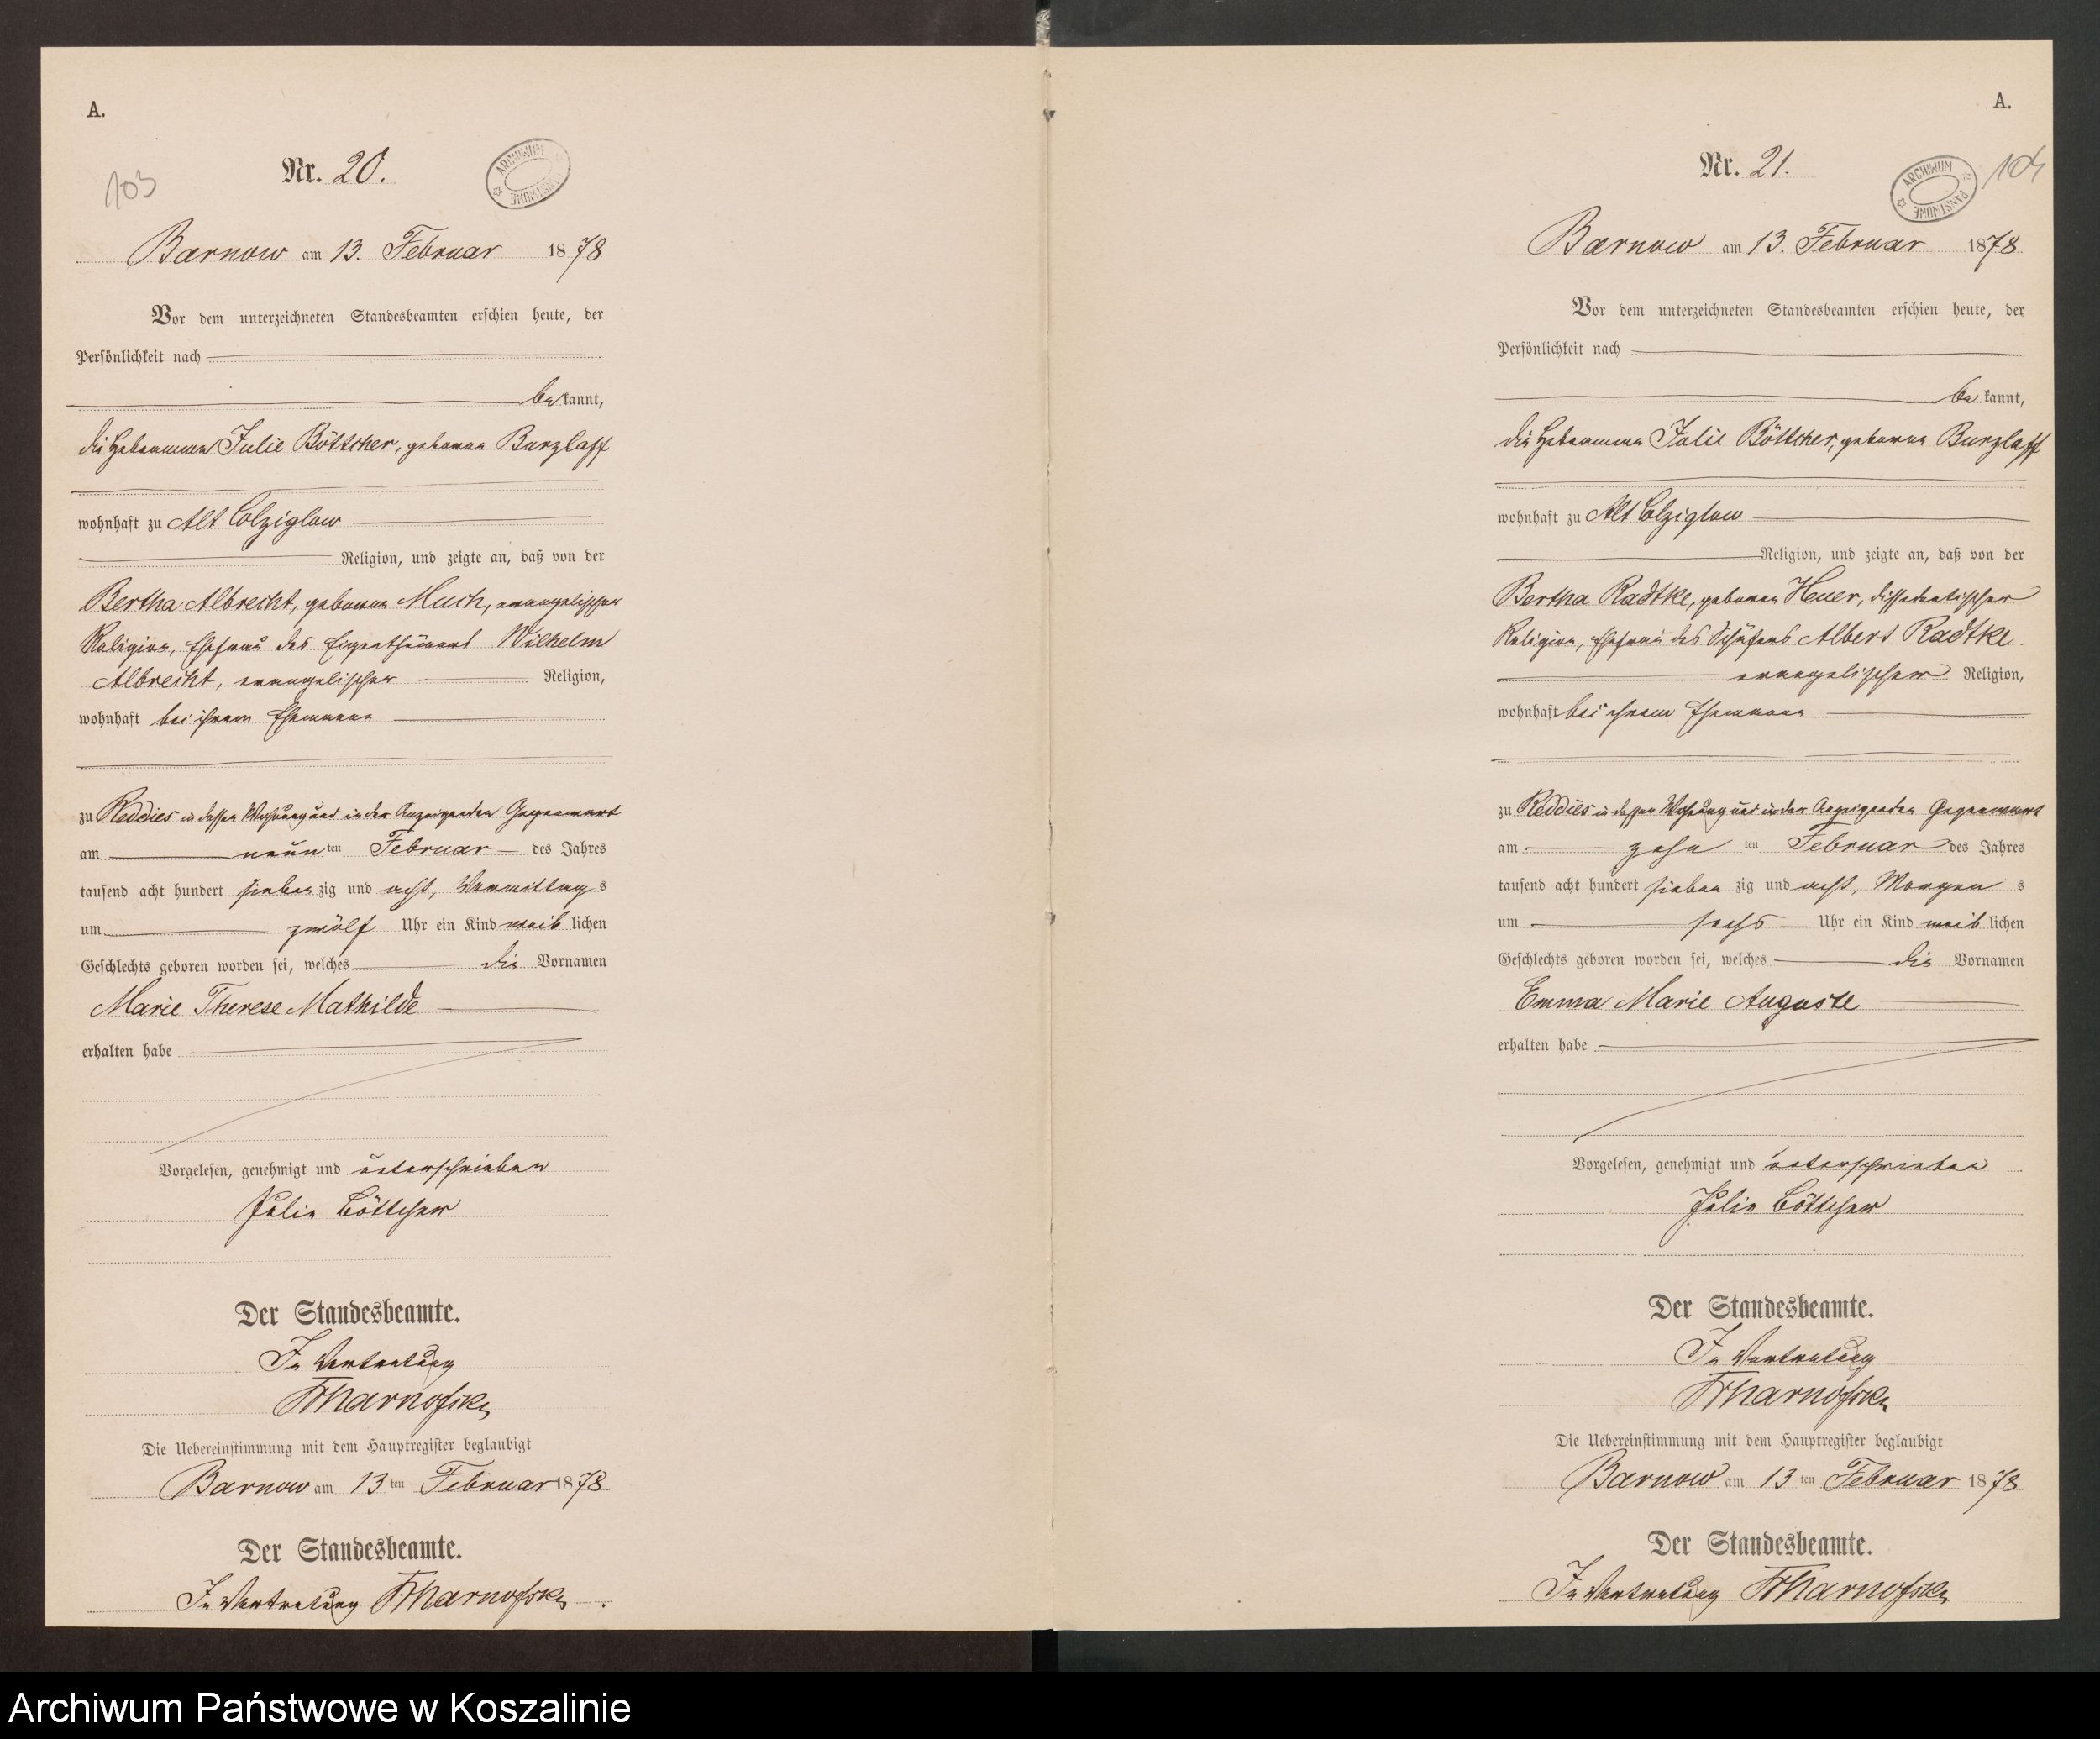 A.
Nr. 20.
ARCHIWUM PAŃSTWOWE
103
Barnow am 13. Februar 1878
Vor dem unterzeichneten Standesbeamten erschien heute, der
Persönlichkeit nach
be kannt,
die Hebamme Julie Böttcher, geborene Burzlaff
wohnhaft zu Alt Colziglow
Religion, und zeigte an, daß von der
Bertha Albrecht, geborene Much, evangelischer
Religion, Ehefrau des Eigenthümers Wilhelm
Albrecht, evangelischer Religion,
wohnhaft bei ihrem Ehemanne
zu Reddies in dessen Wohnung und in der Anzeigenden Gegenwart
am neun ten Februar des Jahres
tausend acht hundert sieben zig und acht, Vormittag s
um zwölf Uhr ein Kind weib lichen
Geschlechts geboren worden sei, welches die Vornamen
Marie Therese Mathilde
erhalten habe
Vorgelesen, genehmigt und unterschrieben
Julie Böttcher
Der Standesbeamte.
In Vertretung
Die Uebereinstimmung mit dem Hauptregister beglaubigt
Barnow am 13 ten Februar 1878
Der Standesbeamte.
In Vertretung
A.
Nr. 21.
ARCHIWUM PAŃSTWOWE
104
Barnow am 13. Februar 1878
Vor dem unterzeichneten Standesbeamten erschien heute, der
Persönlichkeit nach
be kannt,
die Hebamme Julie Böttcher, geborene Burzlaff
wohnhaft zu Alt Colziglow
Religion, und zeigte an, daß von der
Bertha Radtke, geborene Heuer, dissidentischer
Religion, Ehefrau des Schäfers Albert Radtke
evangelischer Religion,
wohnhaft bei ihrem Ehemanne
zu Reddies in dessen Wohnung und in der Anzeigenden Gegenwart
am zehn ten Februar des Jahres
tausend acht hundert sieben zig und acht, Morgen s
um sechs Uhr ein Kind weib lichen
Geschlechts geboren worden sei, welches die Vornamen
Emma Marie Auguste
erhalten habe
Vorgelesen, genehmigt und unterschrieben
Julie Böttcher
Der Standesbeamte.
In Vertretung
Die Uebereinstimmung mit dem Hauptregister beglaubigt
Barnow am 13 ten Februar 1878
Der Standesbeamte.
In Vertretung
Archiwum Państwowe w Koszalinie